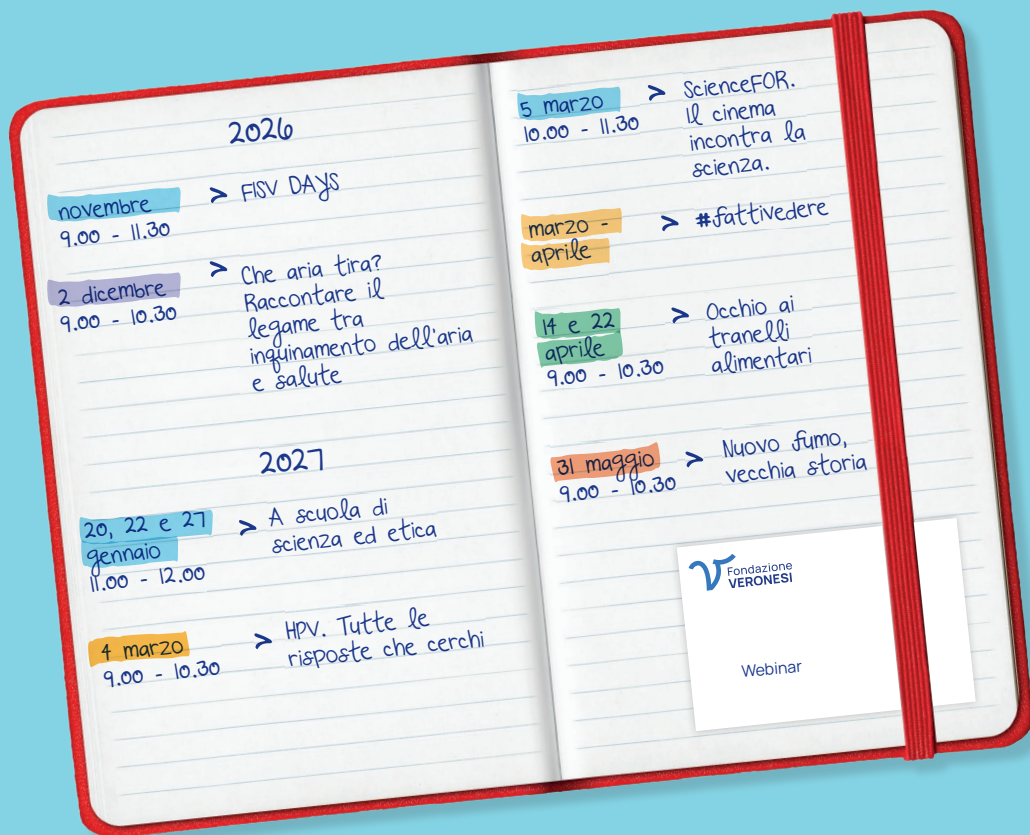 2026
novembre
9.00 - 11.30
> FISV DAYS
2 dicembre
9.00 - 10.30
> Che aria tira?
Raccontare il
legame tra
inquinamento dell'aria
e salute
2027
20, 22 e 27
gennaio
11.00 - 12.00
> A scuola di
scienza ed etica
4 marzo
9.00 - 10.30
> HPV. Tutte le
risposte che cerchi
5 marzo
10.00 - 11.30
> ScienceFOR.
Il cinema
incontra la
scienza.
marzo -
aprile
> #fattivedere
14 e 22
aprile
9.00 - 10.30
> Occhio ai
tranelli
alimentari
31 maggio
9.00 - 10.30
> Nuovo fumo,
vecchia storia
Fondazione
VERONESI
Webinar